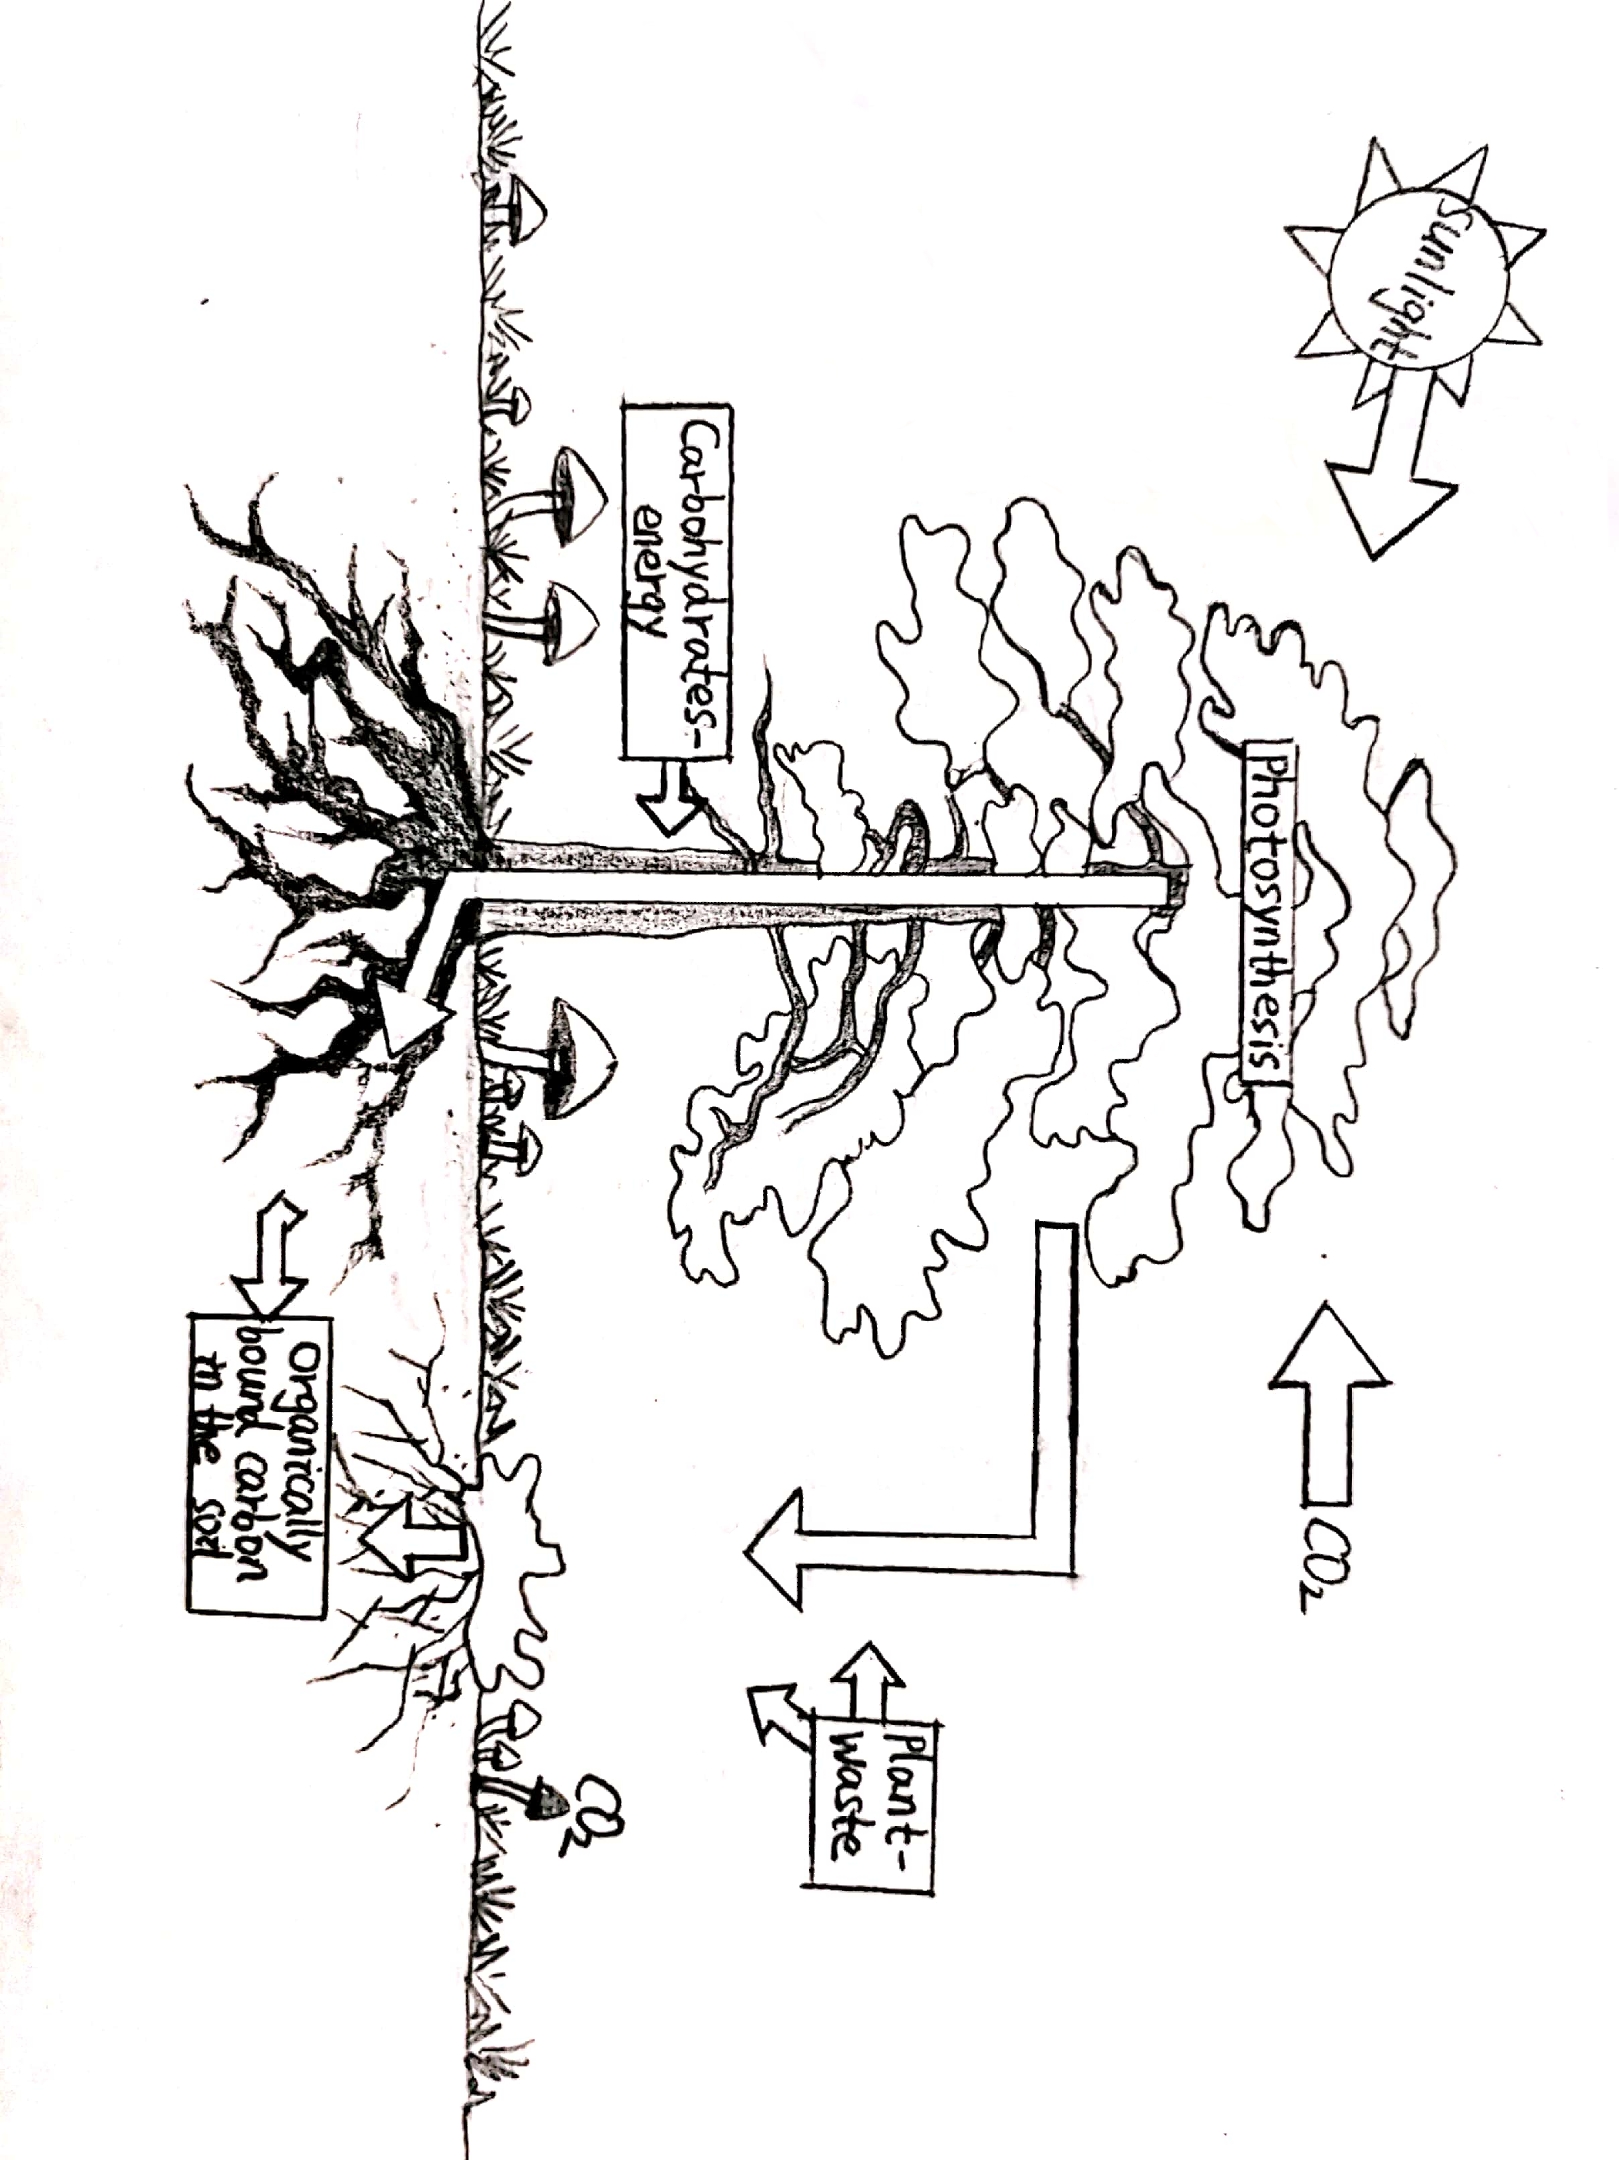 Sunlight
CO₂
Photosynthesis
Plant-
waste
Carbohydrates-
energy
CO₂
Organically
bound carbon
in the soil